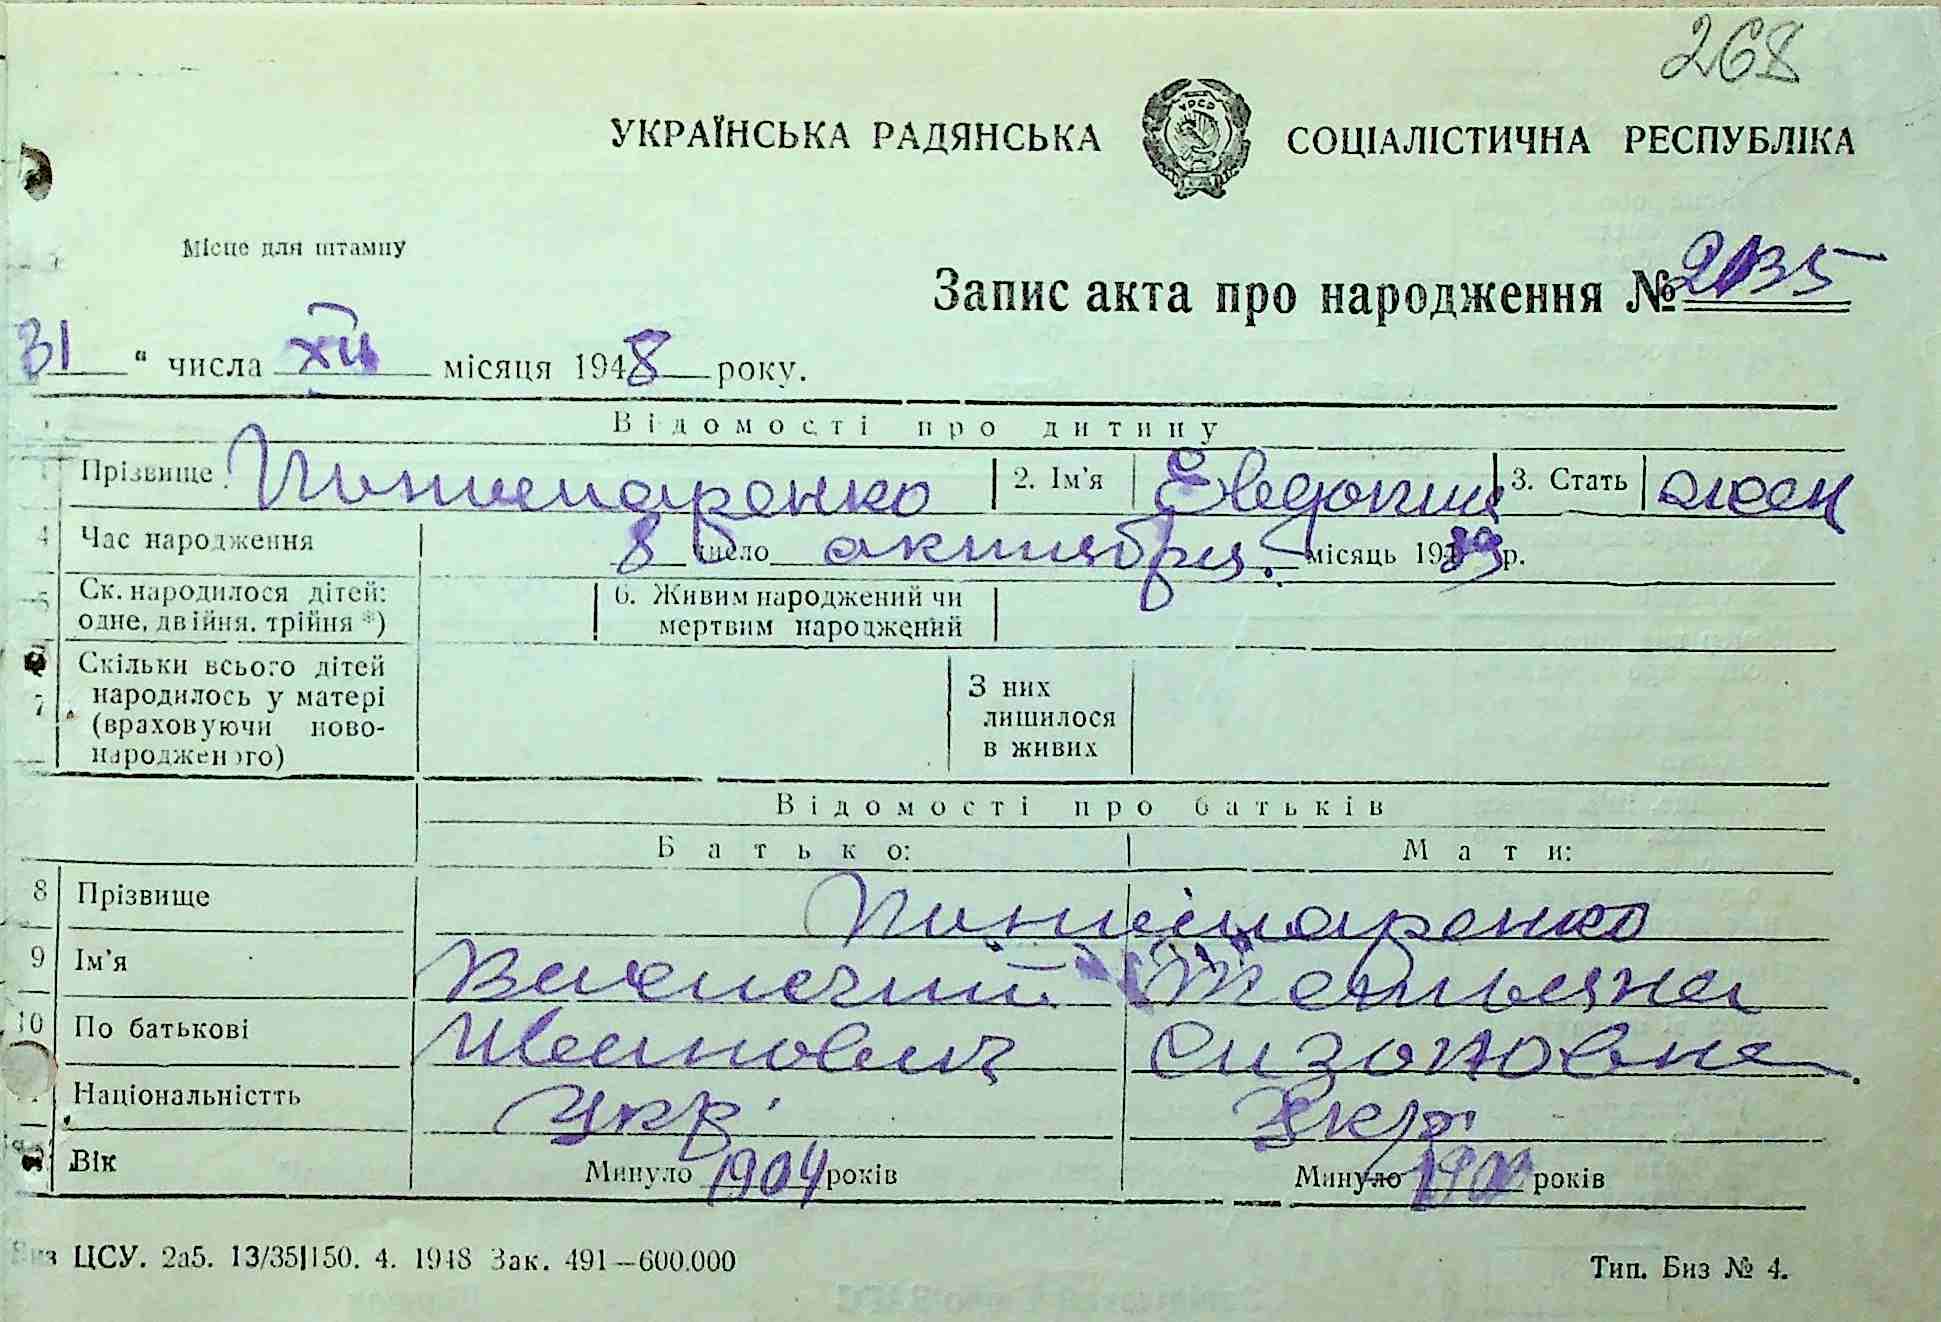 268
УКРАЇНСЬКА РАДЯНСЬКА СОЦІАЛІСТИЧНА РЕСПУБЛІКА
УРСР
Місце для штампу
Запис акта про народження № 2135
31 " числа XII місяця 1948 року.
Відомості про дитину
Прізвище 2. Ім'я 3. Стать жен
4 Час народження 8 число октября місяць 1939 р.
5 Ск. народилося дітей: 6. Живим народжений чи
одне, двійня, трійня *) мертвим народжений
7 Скільки всього дітей З них
народилось у матері лишилося
(враховуючи ново- в живих
народженого)
Відомості про батьків
Батько: Мати:
8 Прізвище
9 Ім'я Татьяна
10 По батькові Иванович Сизоновна
Національністть Укр. Укр.
Вік Минуло 1904 років Минуло років
ЦСУ. 2а5. 13/35|150. 4. 1948 Зак. 491—600.000
Тип. Биз № 4.